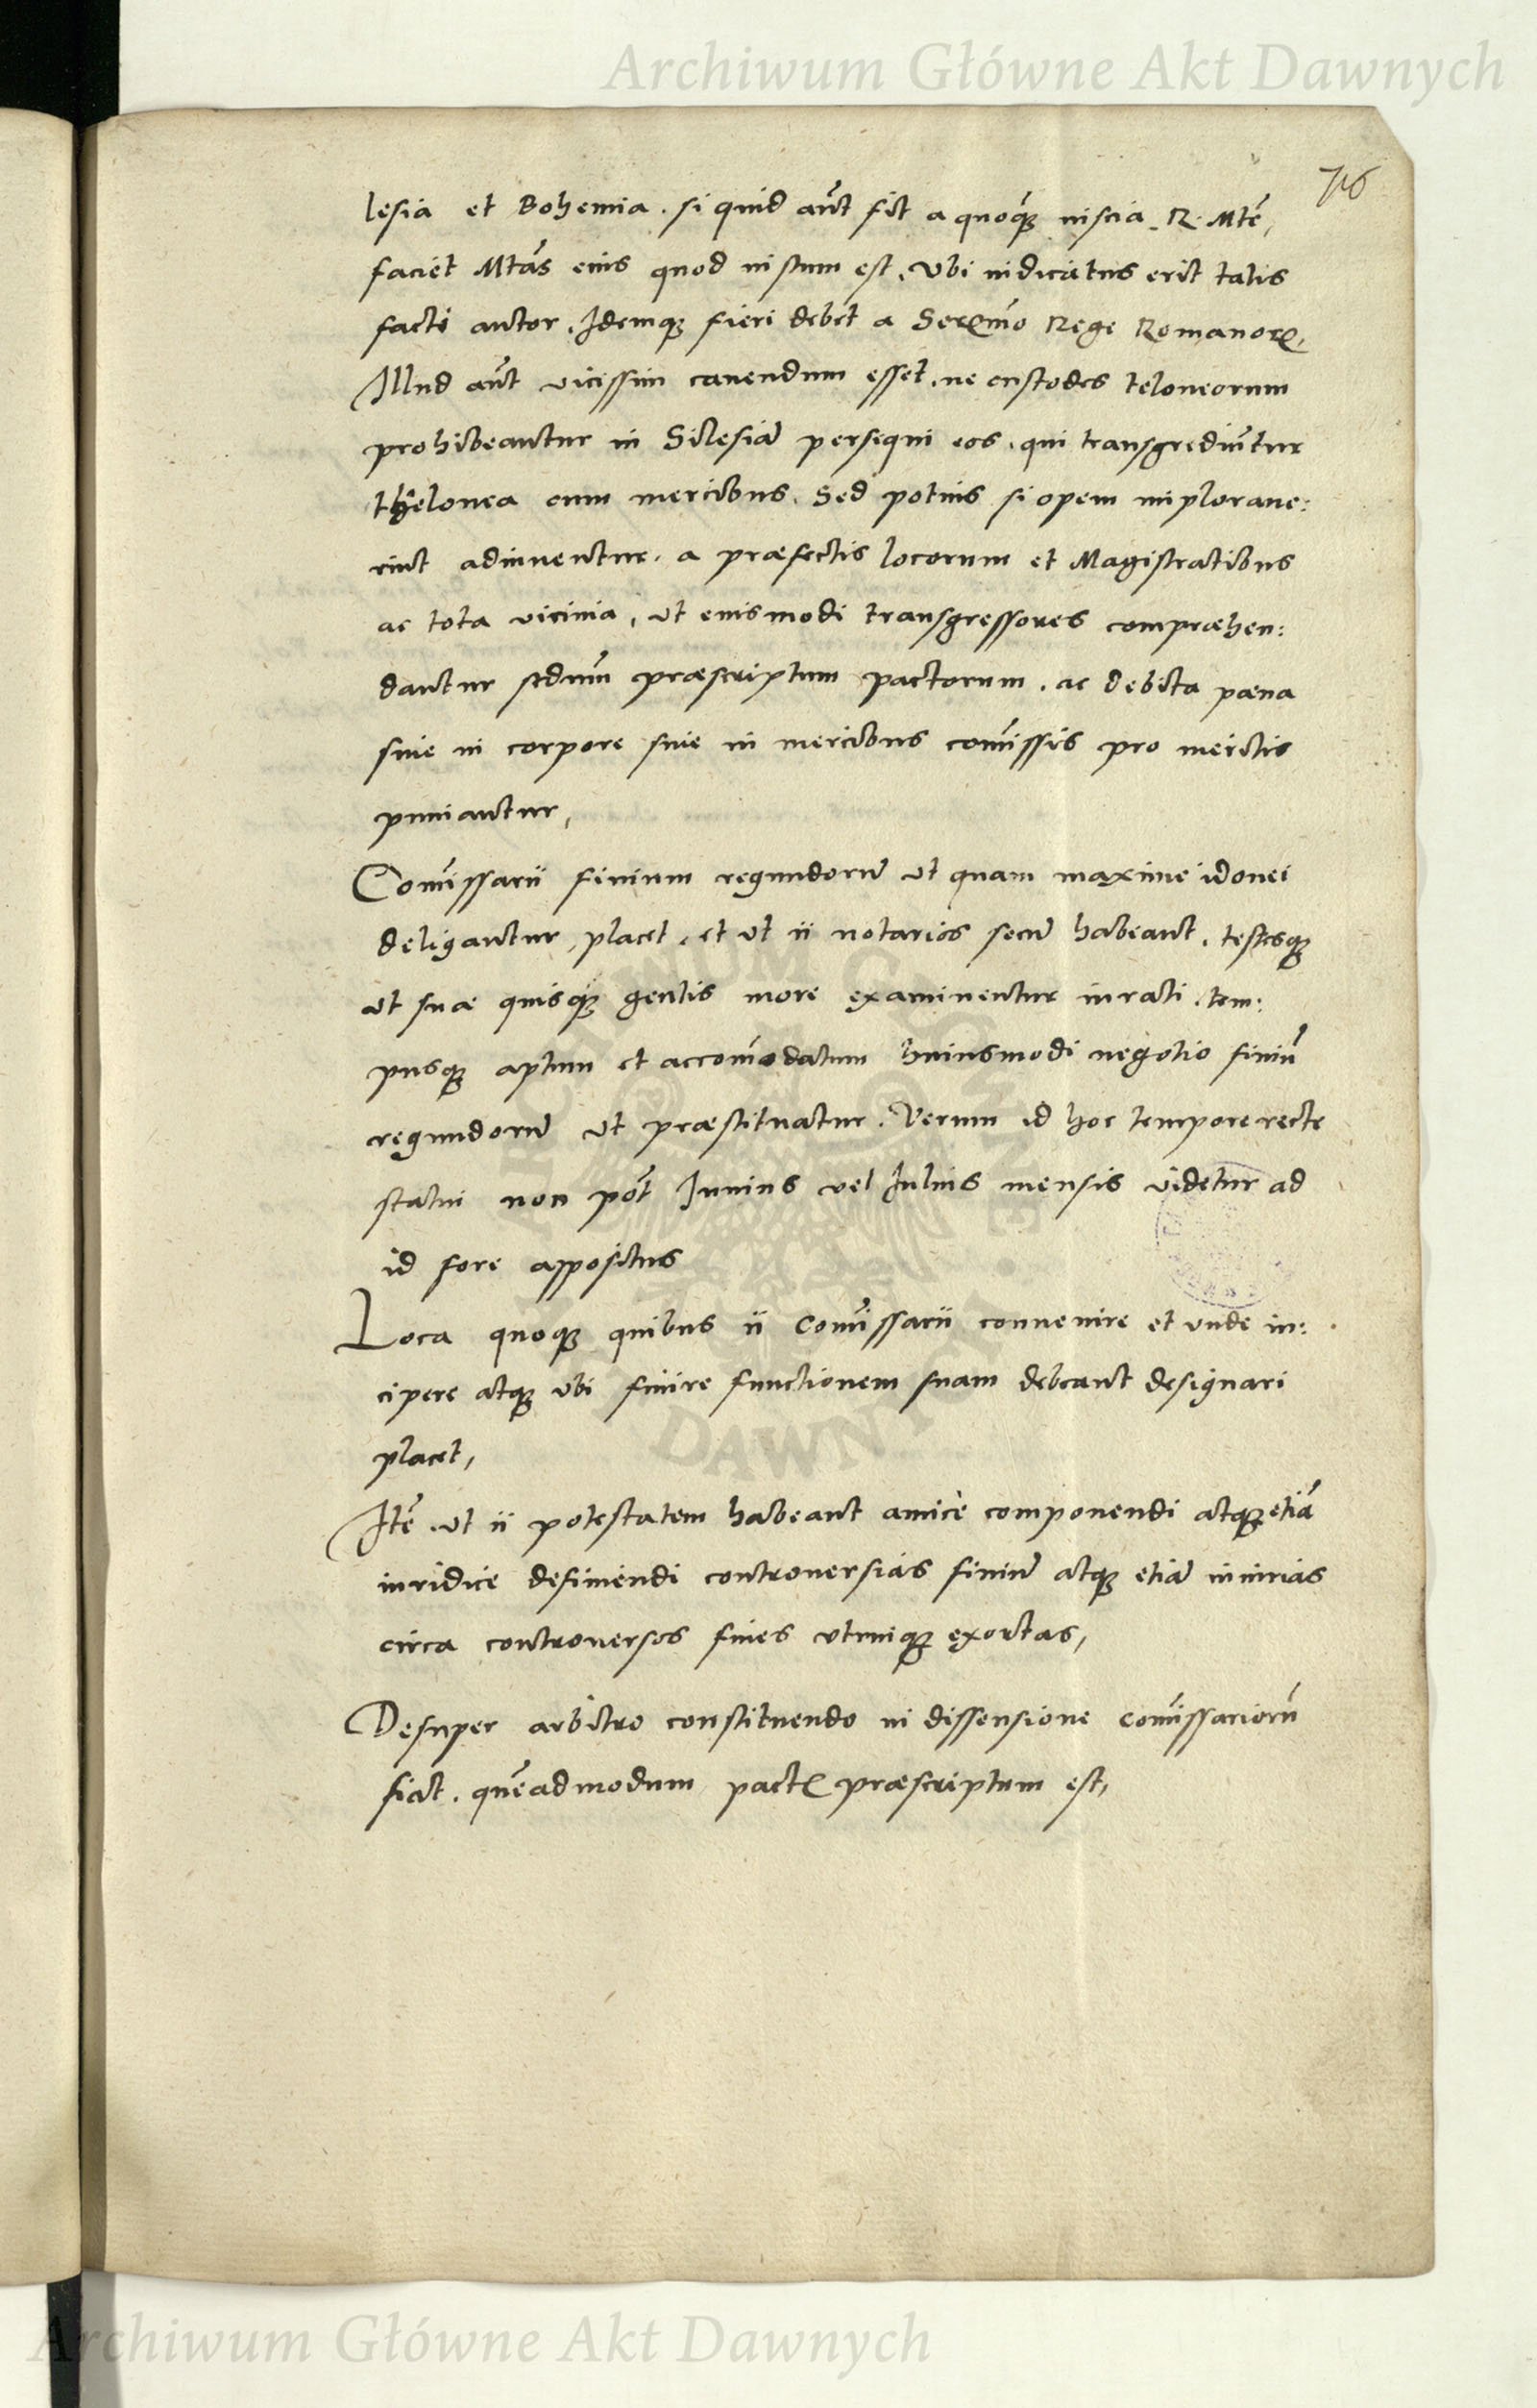 Archiwum Główne Akt Dawnych
lesia et Bohemia. si quid aũt fit a quoq̃ inscia R. Mtẽ,
faciet Mtãs eius quod iustum est, Vbi iudicatus erit talis
facti autor. Idemq̃ fieri debet a Serẽmo Rege Romanorꝝ,
Illud aũt vicissim cauendum esset, ne custodes teloneorum
prohibeantur in Silesiã persequi eos, qui transgrediũtur
thelonea cum mercibus. Sed potius si opem imploraue:
rint adiuuentur. a præfectis locorum et Magistratibus
ac tota vicinia, ut eiusmodi transgressores compræhen:
dantur scdum̃ præscriptum pactorum. ac debita pæna
siue in corpore siue in mercibus com̃issis pro meritis
puniantur,
Com̃issarii finium regundorũ ut quam maxime idonei
deligantur, placet. et ut ii notarios secũ habeant. testesq̃
ut suæ quisq̃ gentis more examinentur iurati. tem:
pusq̃ aptum et accom̃odatum huiusmodi negotio finiũ
regundorũ ut præstituatur. Verum id hoc tempore recte
statui non põt Iunius vel Iulius mensis videtur ad
id fore appositus
Loca quoq̃ quibus ii Com̃issarii conuenire et vnde in:
cipere atq̃ vbi finire functionem suam debeant designari
placet,
Itẽ ut ii potestatem habeant amicè componendi atq̃ etiã
iuridice definiendi controuersias finiũ atq̃ etiã iniurias
circa controuersos fines utrinq̃ exortas,
De super arbitro constituendo in dissensione com̃issariorũ
fiat. quẽadmodum pactꝭ præscriptum est,
Archiwum Główne Akt Dawnych